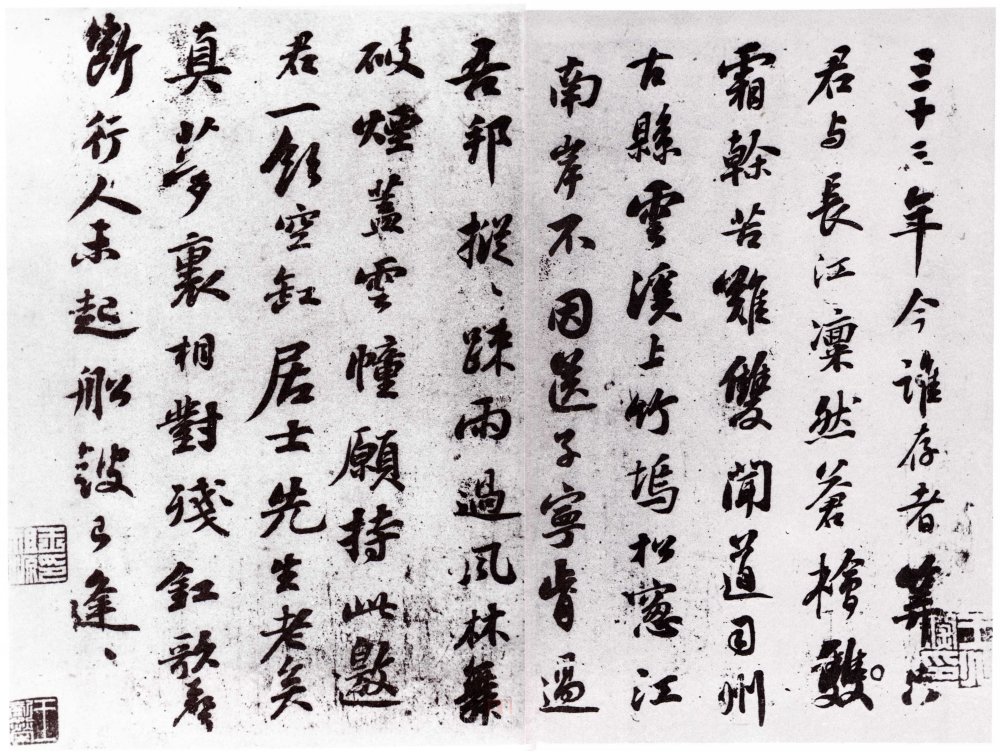 三十三年今誰存者算只
君与長江凜然蒼檜雙
霜幹苦難雙聞道司州
古縣雲溪上竹塢松窓江
南岸不因送子寧肯過
吾邦摐〻疎雨過風林舞
破煙蓋雲幢願持此邀
君一飲空缸居士先生老矣
真夢裏相對殘釭歌聲
斷行人未起船鼓已逢〻